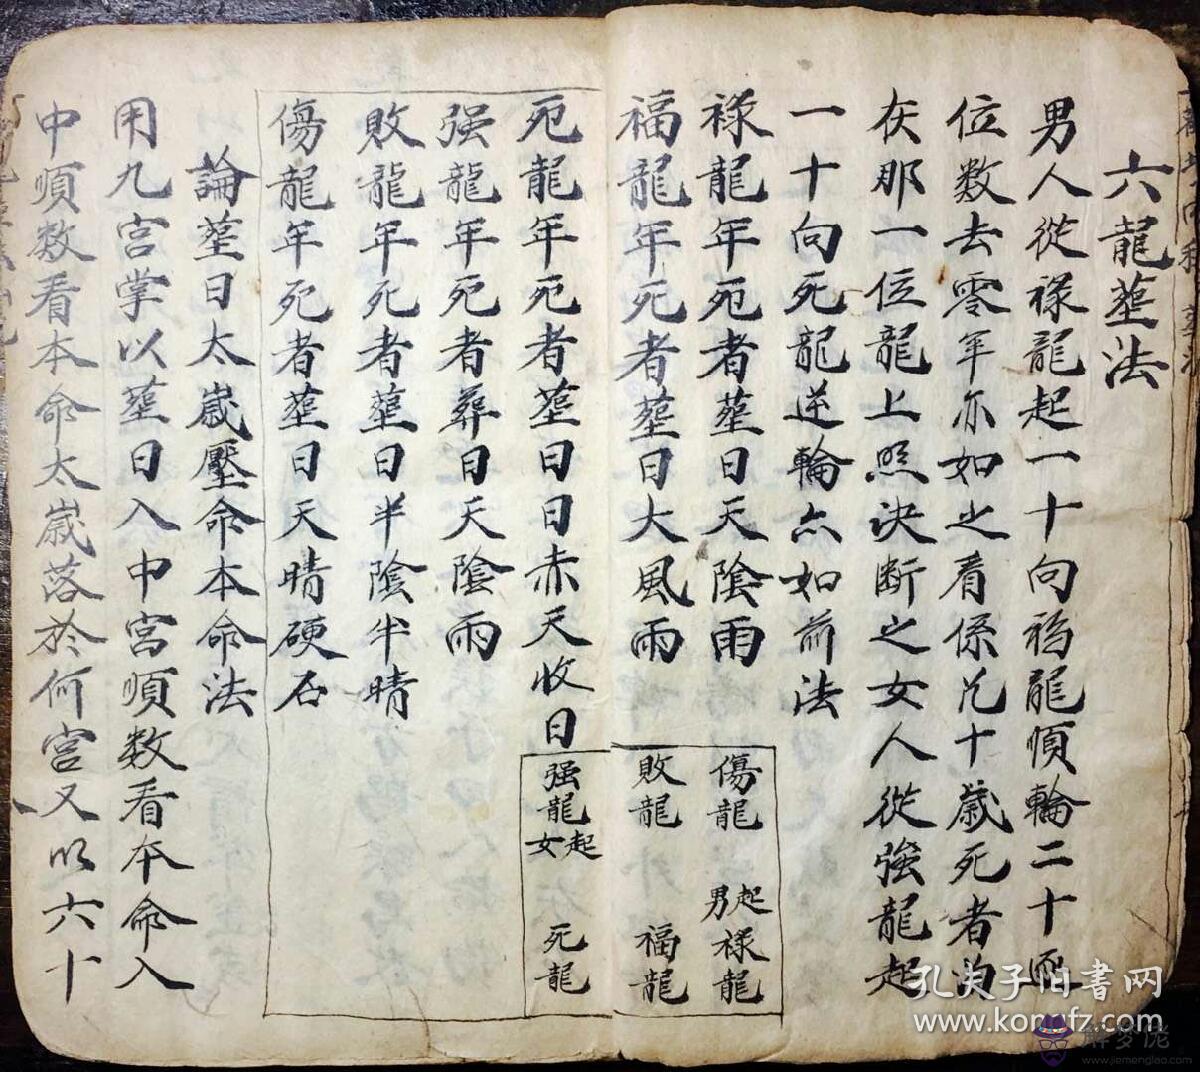 六龍塟法
男人從禄龍起一十向福龍順輪二十逐
位数去零年亦如之看係几十歲死者為
在那一位龍上照決断之女人從強龍起
一十向死龍逆輪亦如前法
禄龍年死者塟日天陰雨
福龍年死者塟日大風雨
死龍年死者塟日日赤天收日
强龍年死者葬日天陰雨
敗龍年死者塟日半陰半晴
傷龍年死者塟日天晴硬石
傷龍
起男
禄龍
敗龍
福龍
强龍
起女
死龍
論塟日太歲壓命本命法
用九宮掌以塟日入中宮順数看本命入
中順数看本命太歲落於何宮又以六十
孔夫子旧书网
www.kongfz.com
解梦佬
www.jiemenglao.com